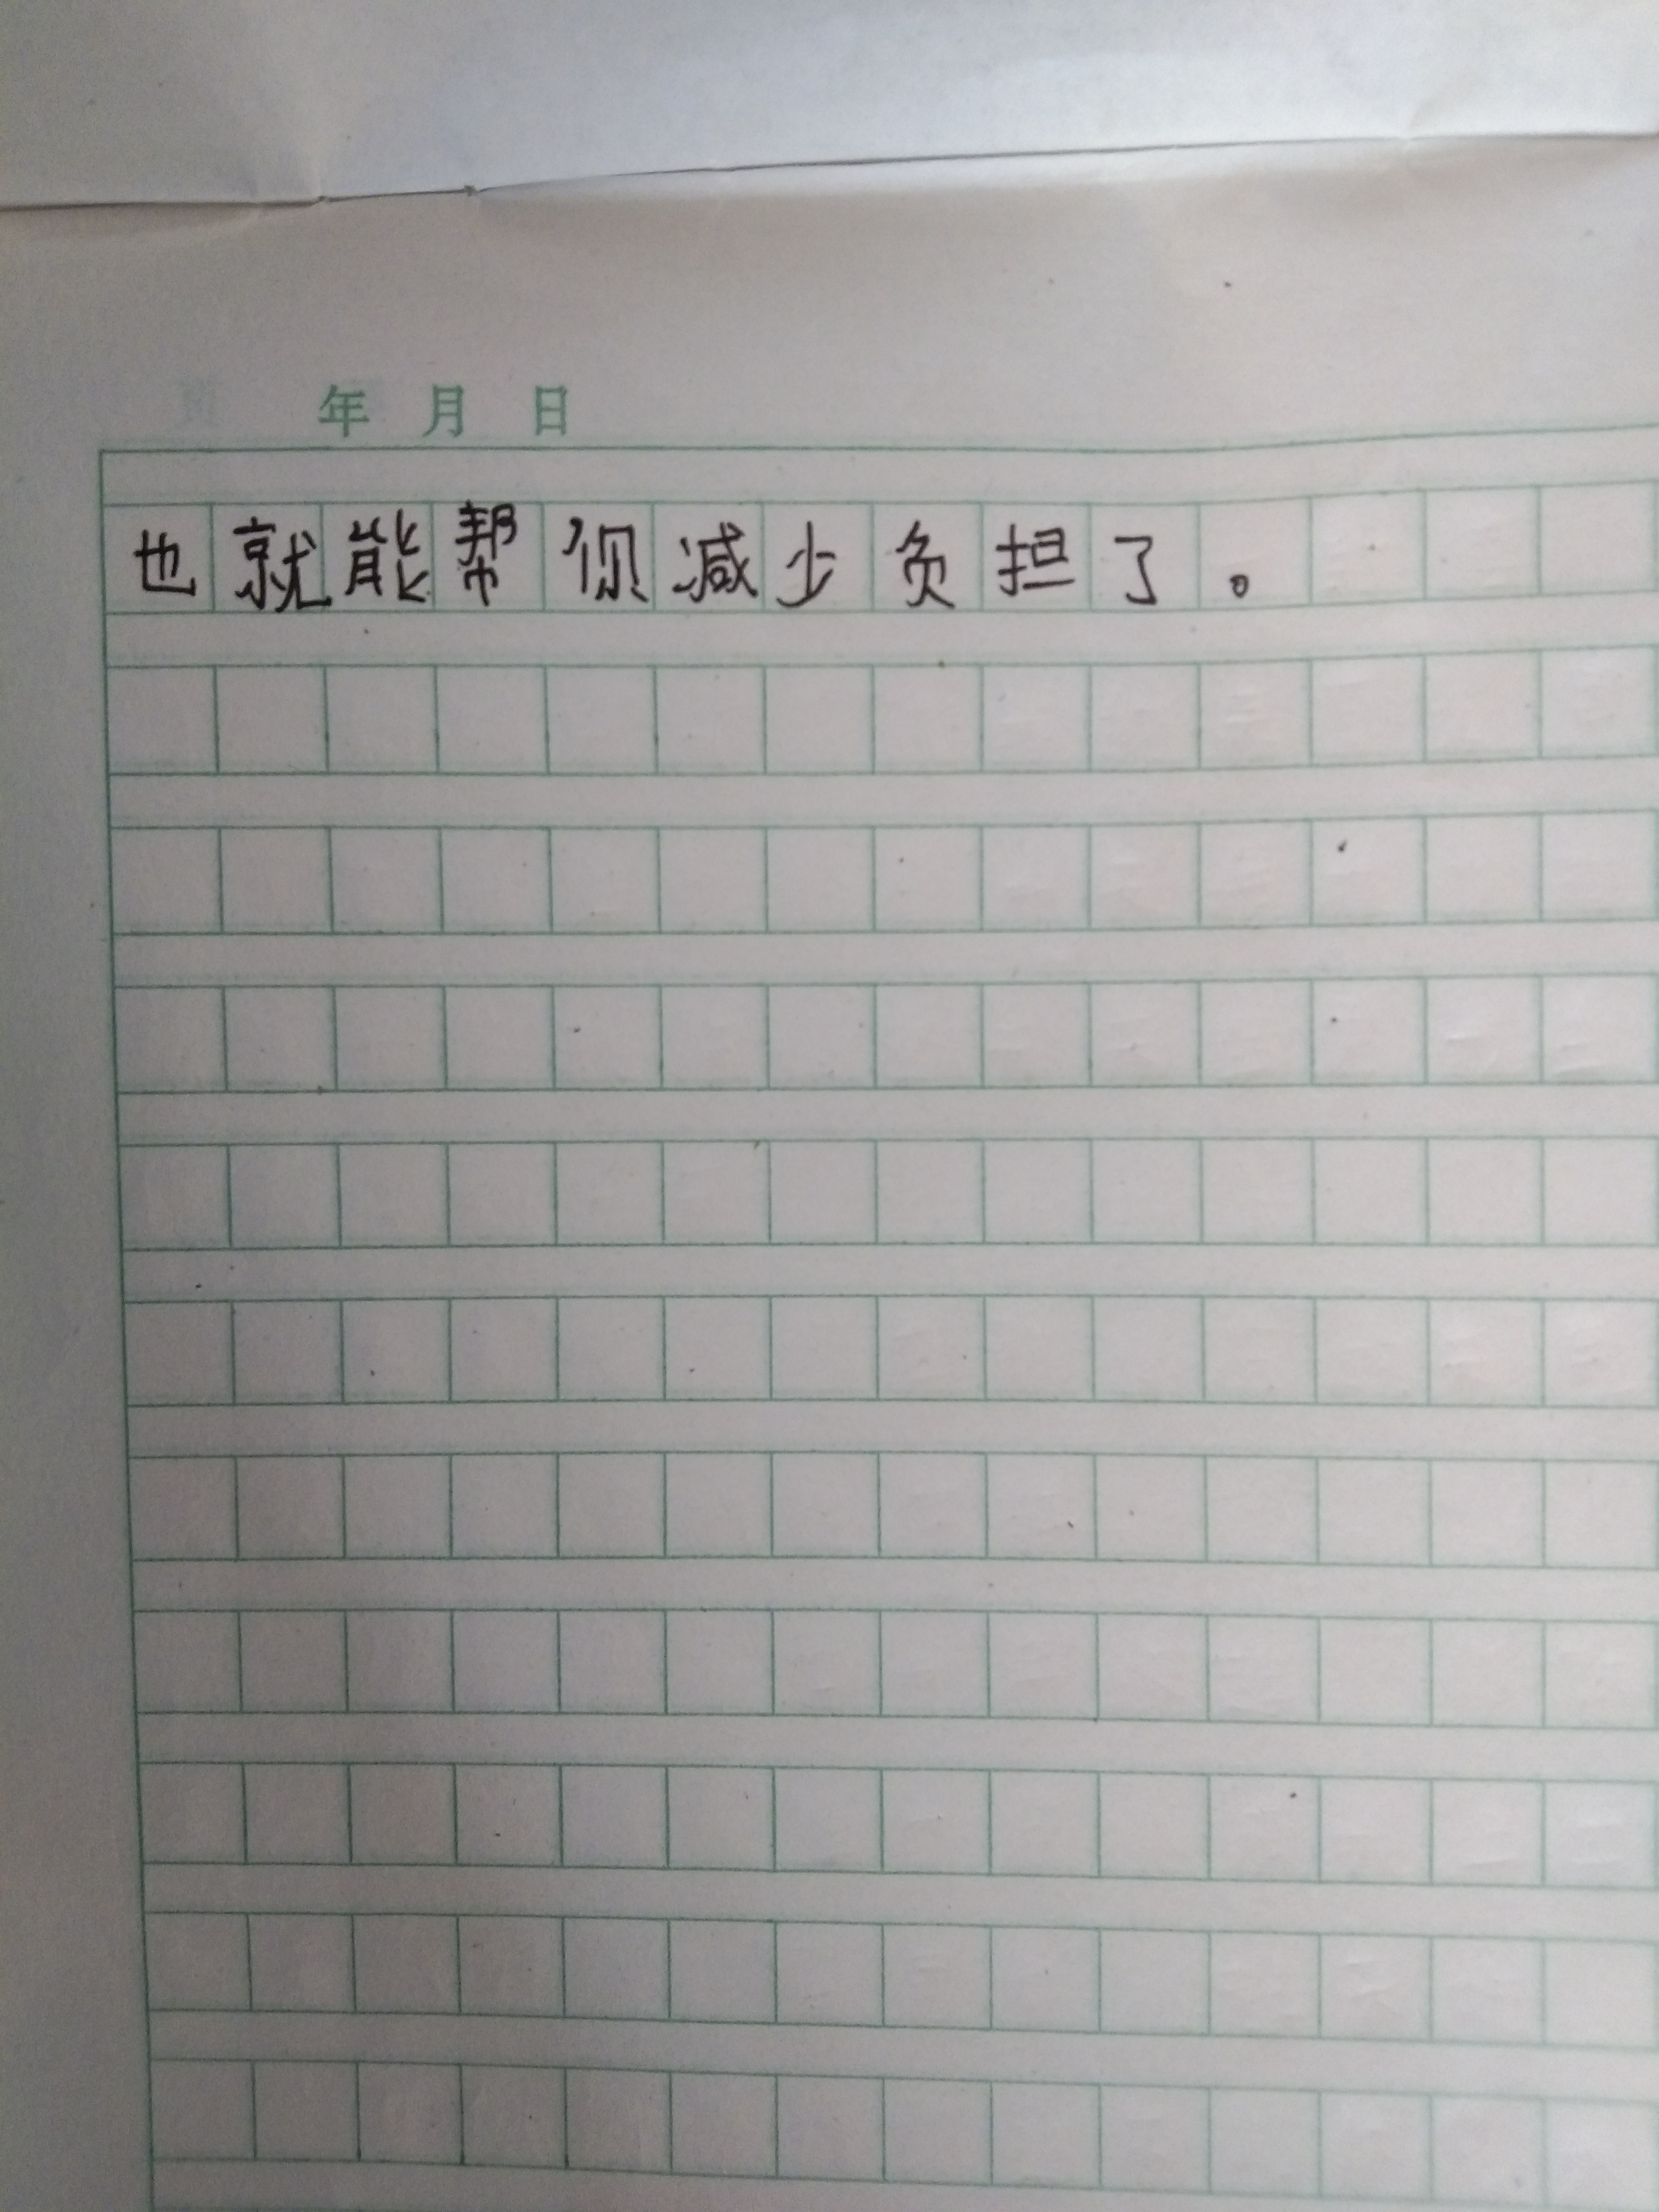 年 月 日
也就能帮你减少负担了。